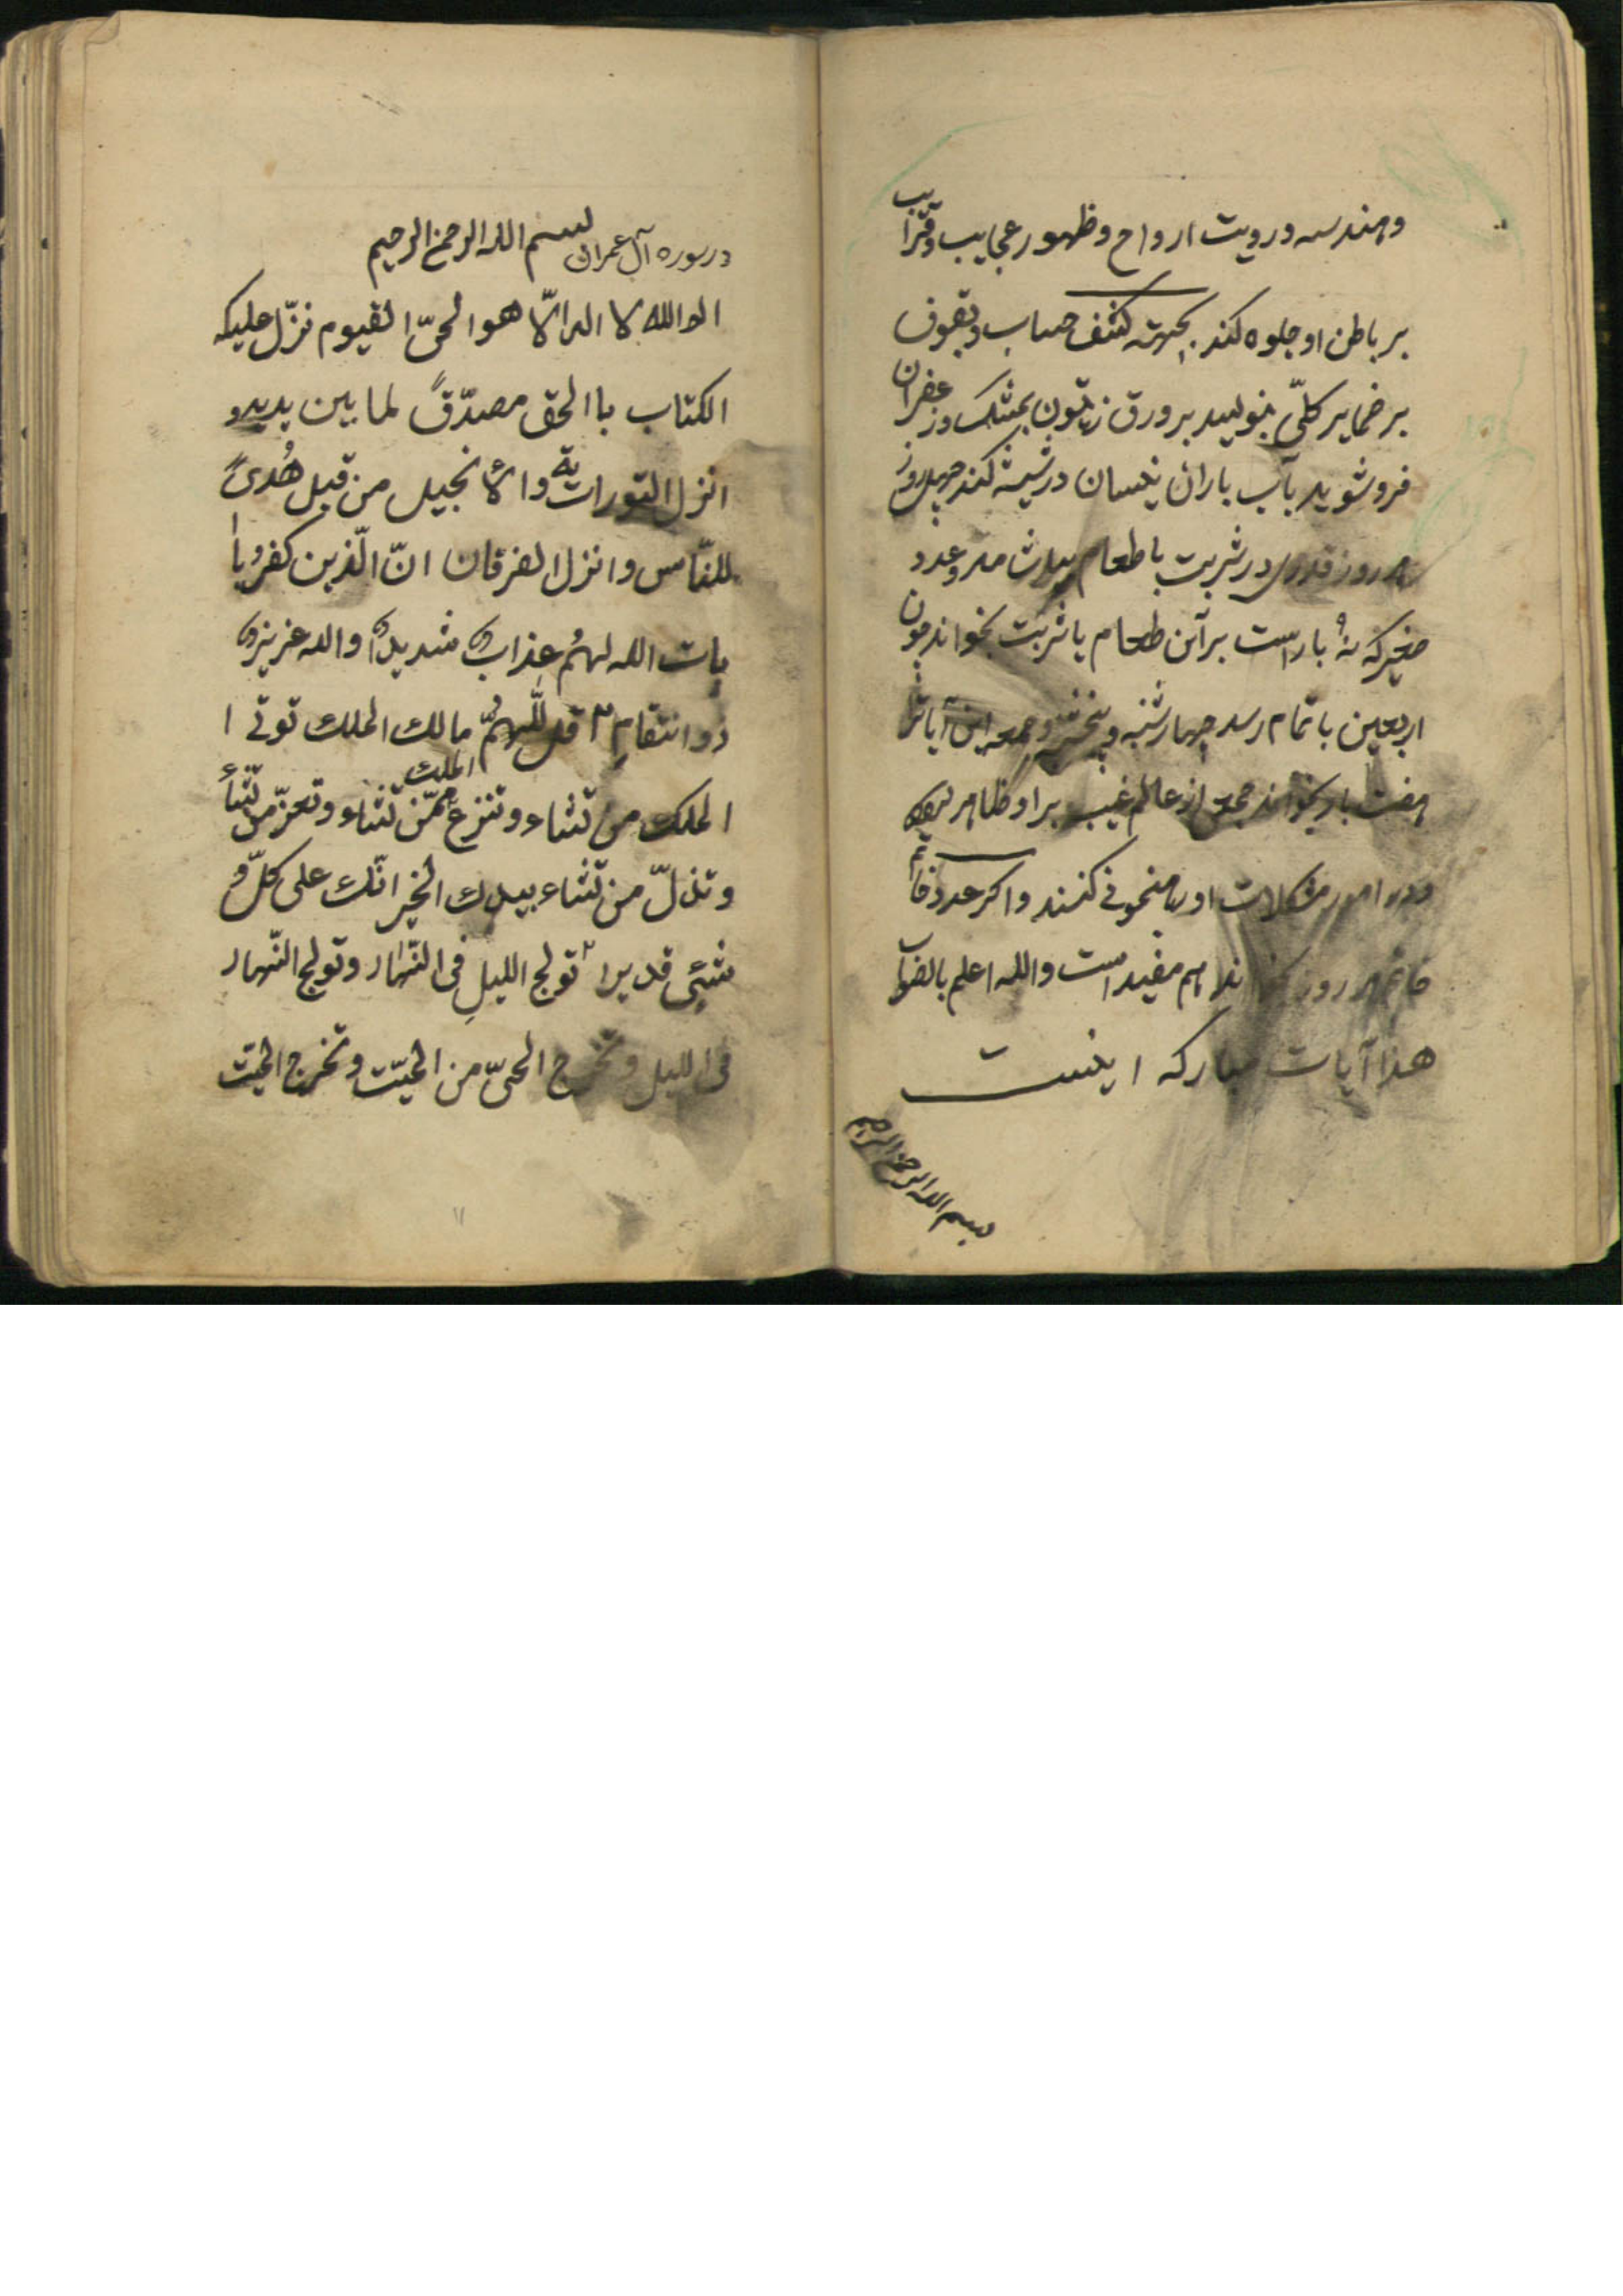 وهندسه ورویت ارواح وظهور عجایب وقرایب
بر باطن او جلوه کند بجهته کشف حساب وقوف
بر ضمایر کلّی بنویسد بر ورق زیتون بمشک وزعفران
فروشوید بآب باران نیسان در شیشه کند چهل روز
هر روز قدری در شربت با طعام عدد
صغیر که نهُ بار است بر آن طعام یا شربت بخواند چون
اربعین باتمام رسد چهارشنبه و پنجشنبه و جمعه این آیاترا
هفت بار بخواند جمعی از عالم غیب براو ظاهر
ودر امور مشکلات اورا رهنمونی کنند واکر عدد خاتم
خاتم هر روز هم مفید است والله اعلم بالصواب
هذا آیات مبارکه اینست
بسم الله الرحمن الرحیم
در سوره آل عمران بسم الله الرحمن الرحیم
الم الله لا اله الّا هو الحیّ القیوم نزّل علیکه
الکتاب باالحق مصدّقً لما بین یدیه و
انزل التوراتیة والأنجیل من قبل هُدیً
للنّاس وانزل الفرقان انّ الّذین کفرُ باٰ
یات الله لهُم عذابٌ شدیدٌ والله عزیزٌ
ذوانتقامٍ ۲ قل للّهُمّ مالك الملك توتی ا
الملك من تشاء وتنزع الملك ممّن تشاء وتعزّ من تشأء
وتذلّ من تشاء بیدك الخیر انّك علی کلّ و
شئیٍ قدیرا ۲ تولج اللیلِ فی النّهار وتولج النّهار
فی اللیل وتخرج الحیّ من المیّت وتخرج المیّت
۱۱